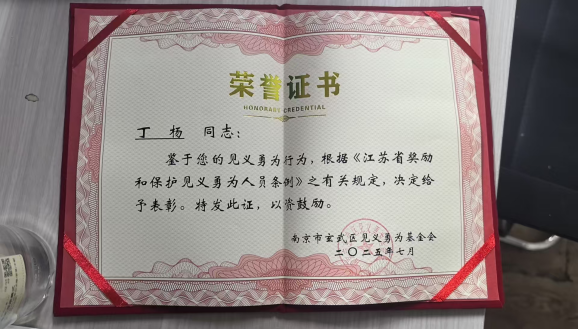 荣誉证书
HONORARY CREDENTIAL
丁 杨 同志：
鉴于您的见义勇为行为，根据《江苏省奖励
和保护见义勇为人员条例》之有关规定，决定给
予表彰。特发此证，以资鼓励。
南京市玄武区见义勇为基金会
二〇二五年七月